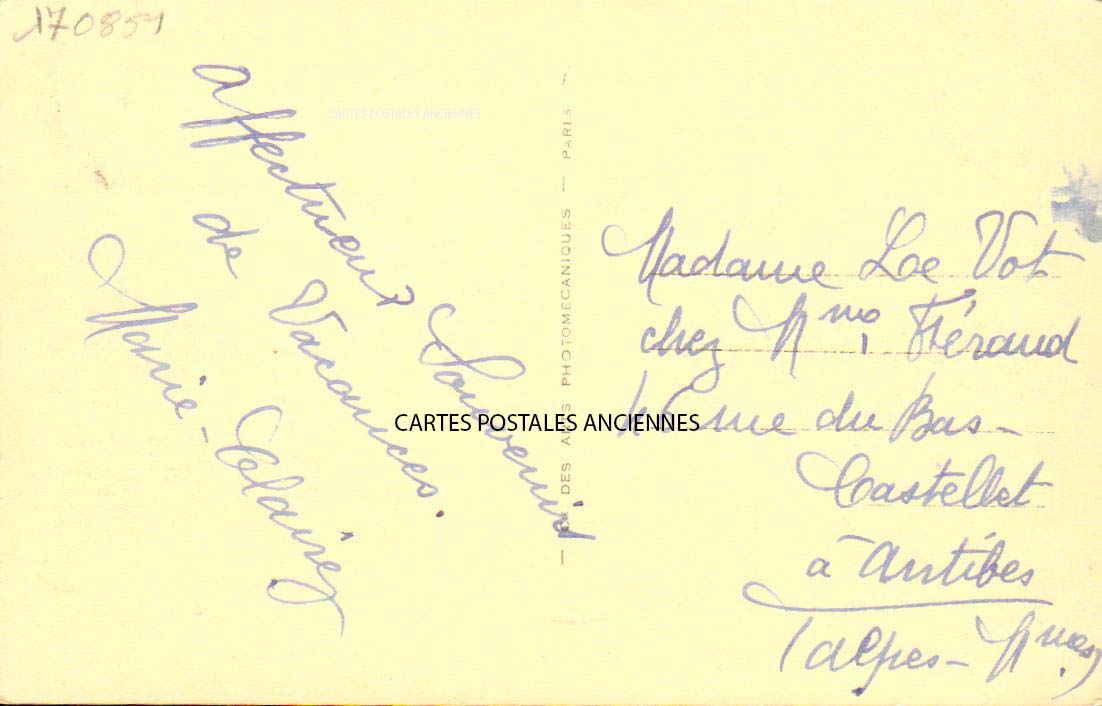 170851
CARTES POSTALES ANCIENNES
Affectueux Souvenirs
de Vacances.
Marie-Claire
DES ARTS PHOTOMECANIQUES — PARIS
CARTES POSTALES ANCIENNES
Madame Loe Vot
chez Mme Féraud
rue du Bas-
Castellet
à Antibes
(Alpes-Mmes)